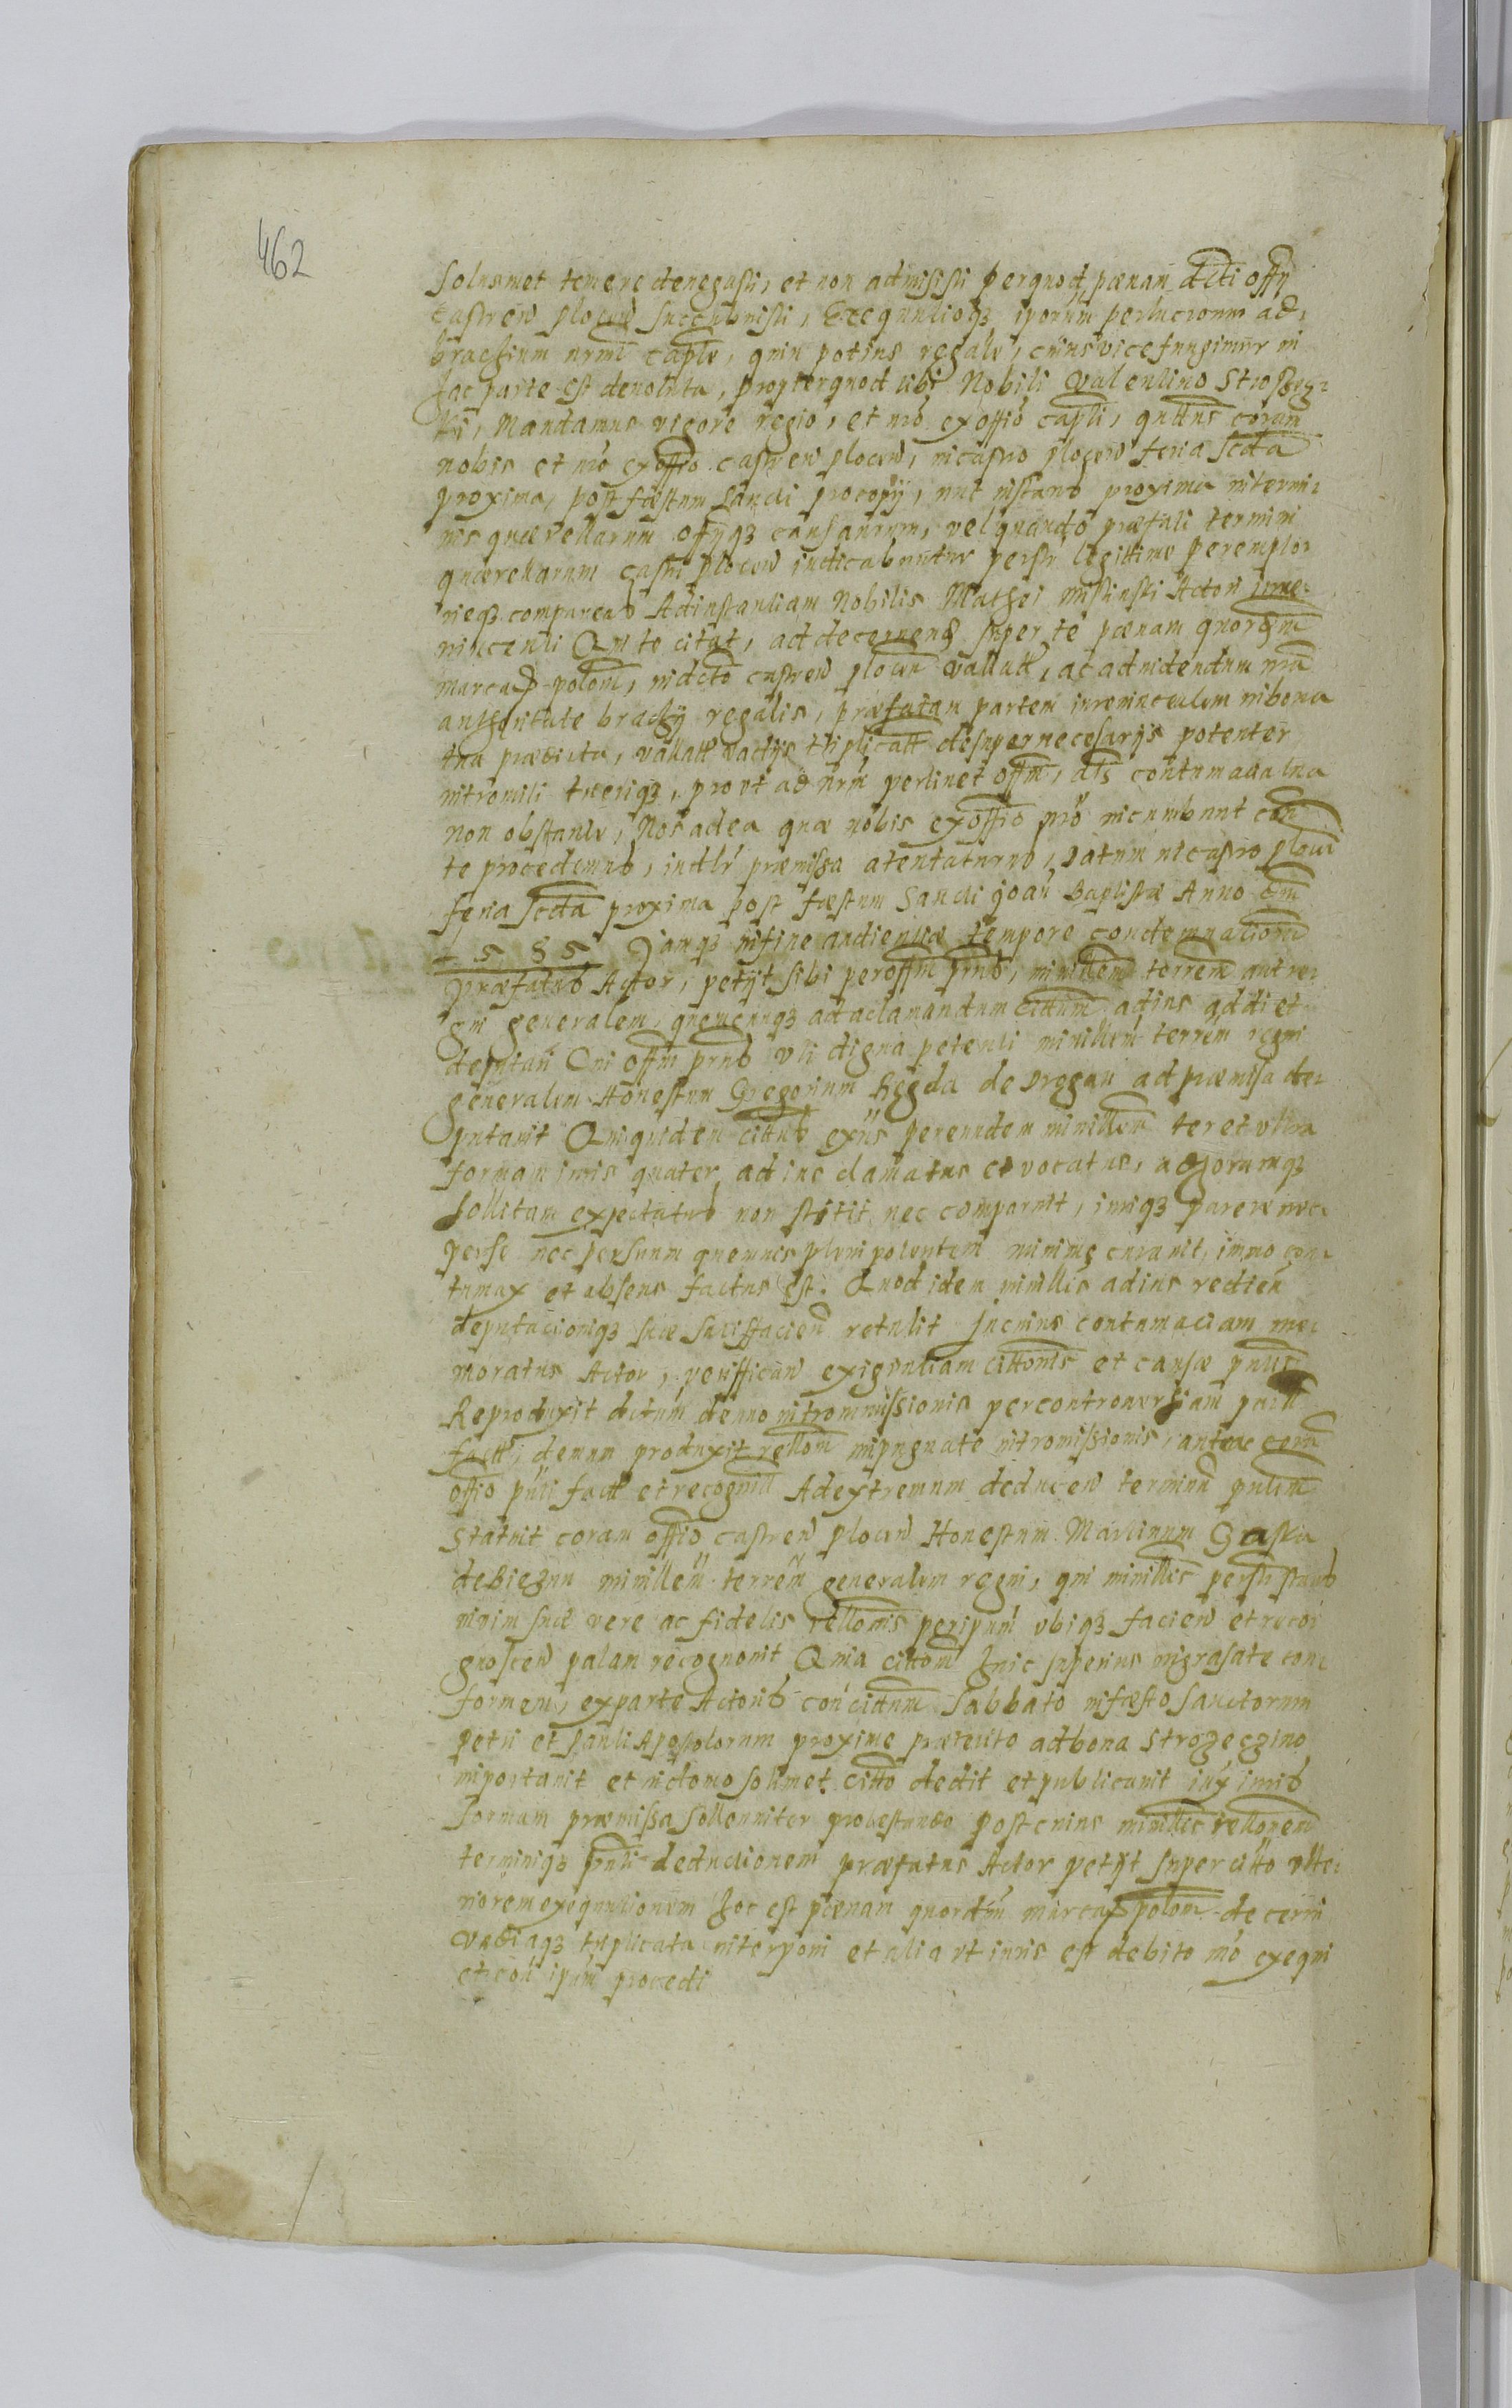 462
solusmet temere denegasti, et non admisisti per quod pænam dcti offÿ
castren plocen succubuisti, Exequutioqꝫ iporum perlucrorum ad
brachium nrm̃ captle, quin potius regale, cuius vice fungimur in
hac parte est devoluta, propterquod tibi Nobili Valentino Strozecz-
ki, Mandamus vigore regio, et nr̃o ex offio captli, qu̅ttus coram
nobis et nr̃o ex offio castren plocen, in castro plocen feria scda
proxima, post fæstum Sancti procopÿ, nut instand proxima in termi-
nis quærellarum offÿqꝫ causarum, vel quando præfati termini
quærellarum castri plocen iudicabuntur perstr legittime peremptor
rieqꝫ compareas Ad instantiam Nobilis Mathei Actoris
vincenti Qui te citat, ad decernend super te pænam quordcim
marcaꝝ polon, in dcto castren plocen vallatt, ac ad videndum nr̃a
authoritate brachÿ regalis, præfatam partem in bona
tua prædicta, vallatt vadÿs triplicatt desuper necesarÿs potenter
intromitti tueriqꝫ, prout ad nr̃m pertinet offm, als contumatia tua
non obstante, Nos ad ea quæ nobis ex offio nr̃o incumbunt con
te procedemus, indtr præmissa atentaturus, Datum in castro plocen
feria scda proxima post fæstum Sancti Joan Baptistæ Anno dni
1585 Iamqꝫ in fine audientiæ tempore condemnationum
præfatus Actor, petÿt sibi per offm prns, ministlem terrem aut re-
gni generalem, quemcunqꝫ ad aclamandum cittum ad ius addi et
deputari Qui offm prns uti digna petenti ministlem terrem regni
generalem Honestum Gregorium hegda de Dregan ad præmissa de-
putavit Qui quidem cittus exiis per eundem ministlem ter et ultra
formam iuris quater ad ius clamatus et vocatus, ac horumqꝫ
sollitam expectatus non stitit nec comparuit, iuriqꝫ parere nec
per se nec per suum quemvis plenipotentem minime curavit, immo con-
tumax et absens factus est. Quod idem ministlis ad ius redien
deputacioniqꝫ suæ satisfacien retulit In cuius contumaciam me-
moratus Actor, veriffican exigentiam cittonis et causæ pntis
Reproduxit actum denuo intrommissionis per controversiam
factt, demum produxit rellon impugnate intromissionis, antea coram
offio pnti factt et recognitt Ad extremum deducen terminu pntem
statuit coram offio castren plocen Honestum Martinum Gaska
de Biezun ministlem terrem generalem regni, qui ministlis perstr stand
vigim suæ vere ac fidelis rellonis per ipum ubiqꝫ facien et reco-
gnoscen palam recognovit Quia citton hic superius ingrosate con-
formem, ex parte Actoris con cittum Sabbato in fæsto Sanctorum
Petri et Pauli Apostolorum proxime præterito ad bona Strozeczino
importavit et in domo solimet citto dedit et publicavit iux iuris
formam præmissa sollenniter protestando Post cuius ministlis rellonem
terminiqꝫ pnti deductionem præfatus Actor petÿt super citto ulte-
riorem exequutionem hoc est pænam quordcim marcaꝝ polon decerni
Vadiaqꝫ triplicata interponi et alia ut iuris est debito mo exequi
et con ipum procedi